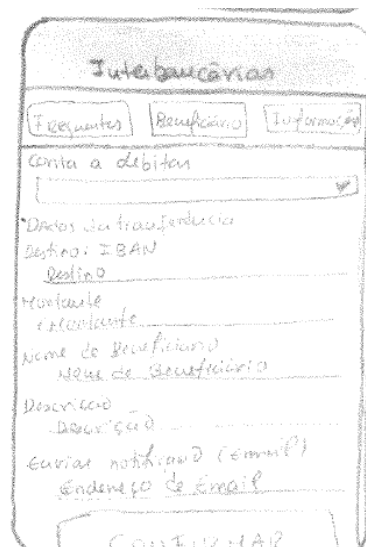 Interbancárias
Frequentes Beneficiário Informação
Conta a debitar
Dados da transferência
Destino: IBAN
Destino
Montante
Montante
Nome do Beneficiário
Nome do Beneficiário
Descrição
Descrição
Enviar notificação (Email)
Endereço de Email
CONFIRMAR